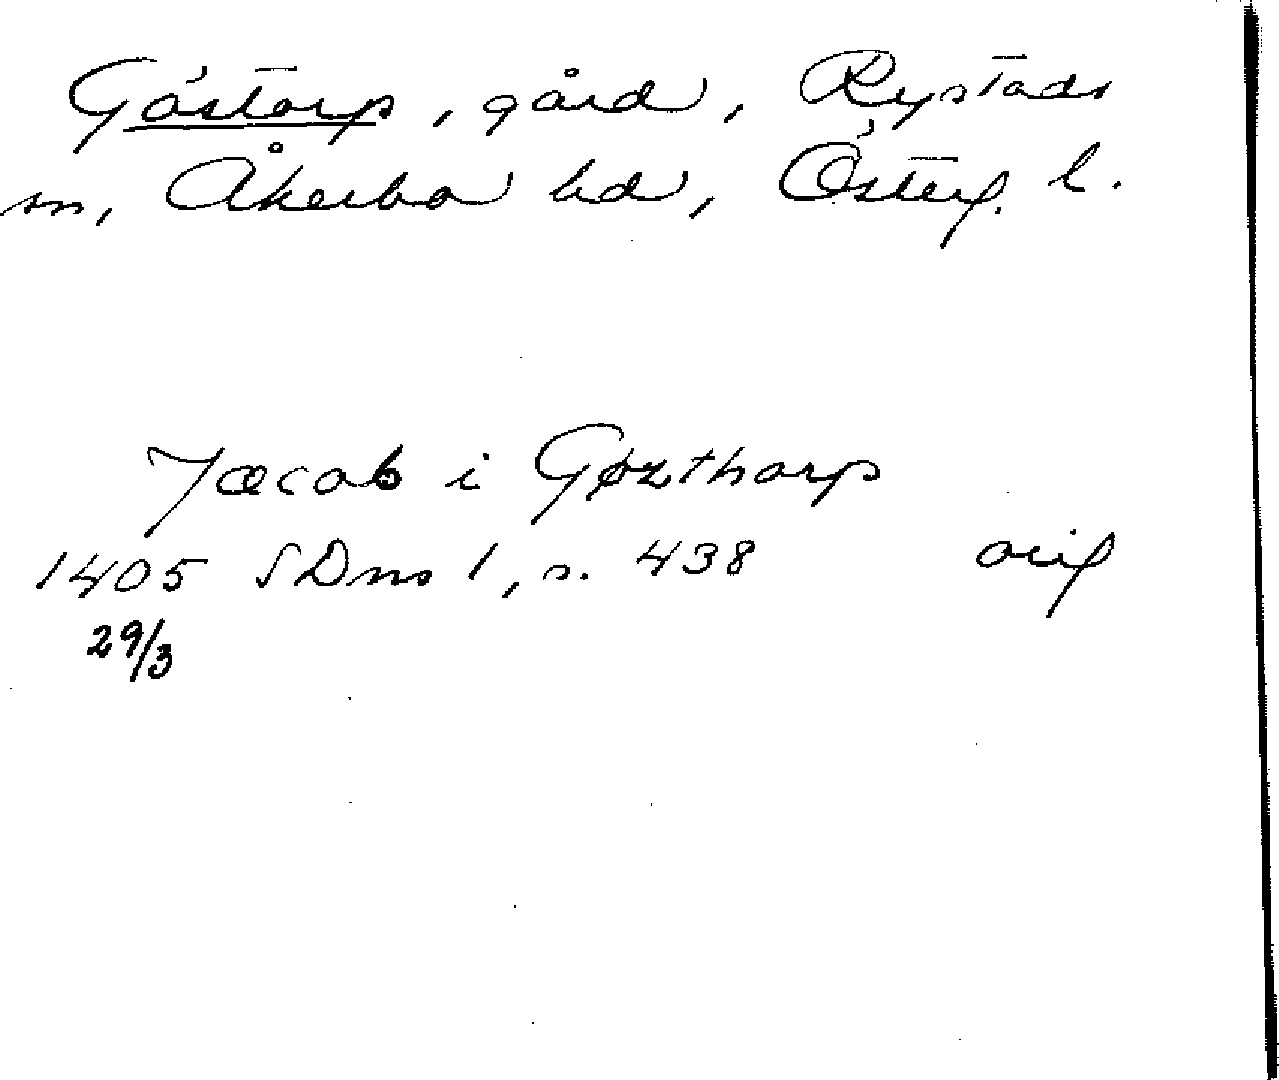 Göstorp, gård, Rystads
sn, Åkerbo hd, Österg. l.
Jæcob i Gøztharp
1405 SDns 1, s. 438 orig
29/3